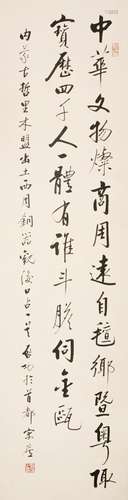 中華文物燦商周遠自氈鄉暨粵陬
寶歷四千人一體有誰斗膽伺金甌
内蒙古哲里木盟出土西周銅器觀後口占一首 啟功於首都